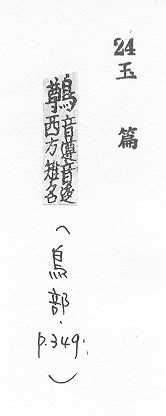 24
玉篇
鷷
音尊音逡
西方雉名
(鳥部·
p.349:)